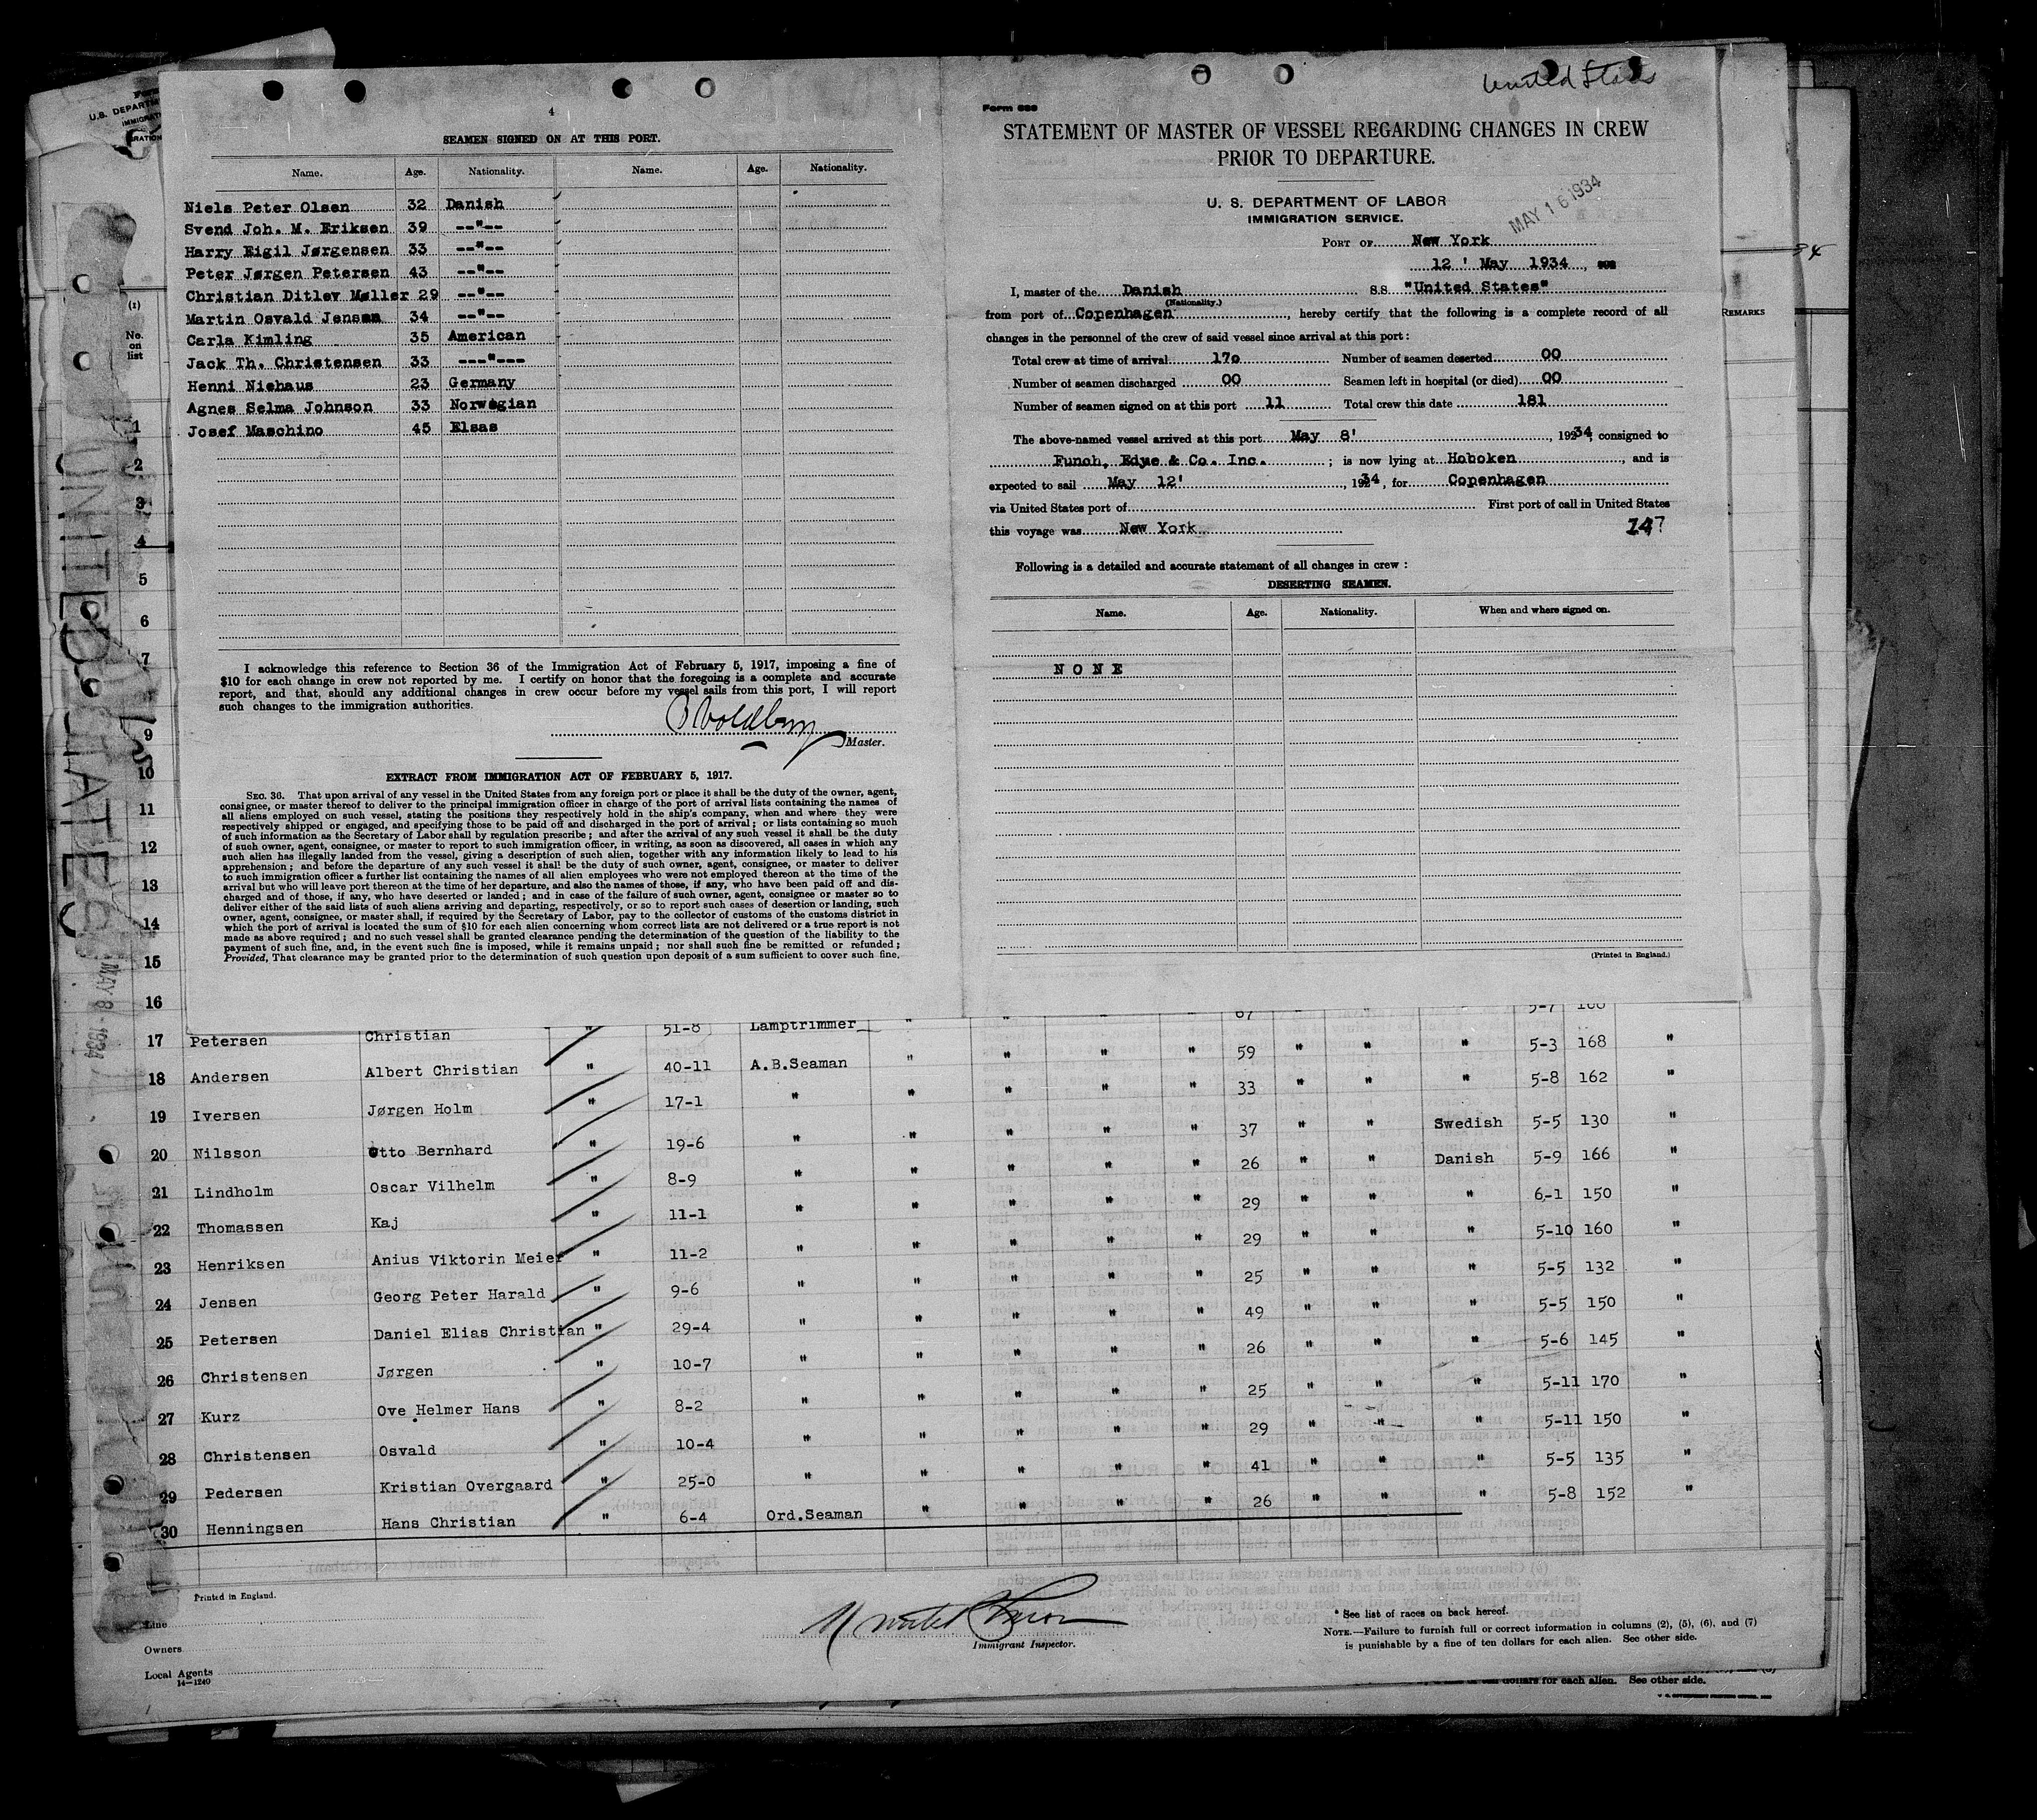 4
SEAMEN SIGNED ON AT THIS PORT.
Name. Age. Nationality. Name. Age. Nationality.
Niels Peter Olsen 32 Danish
Svend Joh. M. Eriksen 39 --"--
Harry Eigil Jørgensen 33 --"--
Peter Jørgen Petersen 43 --"--
Christian Ditlev Møller 29 --"--
Martin Osvald Jensen 34 --"--
Carla Kimling 35 American
Jack Th. Christensen 33 ---"---
Henni Niehaus 23 Germany
Agnes Selma Johnson 33 Norwegian
Josef Maschino 45 Elsas
I acknowledge this reference to Section 36 of the Immigration Act of February 5, 1917, imposing a fine of
$10 for each change in crew not reported by me. I certify on honor that the foregoing is a complete and accurate
report, and that, should any additional changes in crew occur before my vessel sails from this port, I will report
such changes to the immigration authorities.
Master.
EXTRACT FROM IMMIGRATION ACT OF FEBRUARY 5, 1917.
SEC. 36. That upon arrival of any vessel in the United States from any foreign port or place it shall be the duty of the owner, agent,
consignee, or master thereof to deliver to the principal immigration officer in charge of the port of arrival lists containing the names of
all aliens employed on such vessel, stating the positions they respectively hold in the ship's company, when and where they were
respectively shipped or engaged, and specifying those to be paid off and discharged in the port of arrival; or lists containing so much
of such information as the Secretary of Labor shall by regulation prescribe; and after the arrival of any such vessel it shall be the duty
of such owner, agent, consignee, or master to report to such immigration officer, in writing, as soon as discovered, all cases in which any
such alien has illegally landed from the vessel, giving a description of such alien, together with any information likely to lead to his
apprehension; and before the departure of any such vessel it shall be the duty of such owner, agent, consignee, or master to deliver
to such immigration officer a further list containing the names of all alien employees who were not employed thereon at the time of the
arrival but who will leave port thereon at the time of her departure, and also the names of those, if any, who have been paid off and dis-
charged and of those, if any, who have deserted or landed; and in case of the failure of such owner, agent, consignee or master so to
deliver either of the said lists of such aliens arriving and departing, respectively, or so to report such cases of desertion or landing, such
owner, agent, consignee, or master shall, if required by the Secretary of Labor, pay to the collector of customs of the customs district in
which the port of arrival is located the sum of $10 for each alien concerning whom correct lists are not delivered or a true report is not
made as above required; and no such vessel shall be granted clearance pending the determination of the question of the liability to the
payment of such fine, and, in the event such fine is imposed, while it remains unpaid; nor shall such fine be remitted or refunded;
Provided, That clearance may be granted prior to the determination of such question upon deposit of a sum sufficient to cover such fine.
United States
Form 689
STATEMENT OF MASTER OF VESSEL REGARDING CHANGES IN CREW
PRIOR TO DEPARTURE.
U. S. DEPARTMENT OF LABOR
IMMIGRATION SERVICE.
MAY 16 1934
PORT OF New York
12 ' May 1934
I, master of the Danish S.S. "United States"
(Nationality.)
from port of Copenhagen, hereby certify that the following is a complete record of all
changes in the personnel of the crew of said vessel since arrival at this port:
Total crew at time of arrival 17o Number of seamen deserted 00
Number of seamen discharged 00 Seamen left in hospital (or died) 00
Number of seamen signed on at this port 11 Total crew this date 181
The above-named vessel arrived at this port May 8', 1934, consigned to
Funch, Edye & Co. Inc.; is now lying at Hoboken, and is
expected to sail May 12', 1934, for Copenhagen
via United States port of First port of call in United States
this voyage was New York 147
Following is a detailed and accurate statement of all changes in crew:
DESERTING SEAMEN.
Name. Age. Nationality. When and where signed on.
NONE
(Printed in England.)
REMARKS
34
U.S. DEPARTM
(1)
No.
on
list
1
2
3
4
5
6
7
9
10
11
12
13
14
15
16
UNITED STATES
MAY 8 - 1934
17 Petersen Christian " 51-8 Lamptrimmer " " " " 67
18 Andersen Albert Christian " 40-11 A.B.Seaman " " " " 59 " " " 5-3 168 "
19 Iversen Jørgen Holm " 17-1 " " " " " 33 " " " 5-8 162 "
20 Nilsson Otto Bernhard " 19-6 " " " " " 37 " " Swedish 5-5 130 "
21 Lindholm Oscar Vilhelm " 8-9 " " " " " 26 " " Danish 5-9 166 "
22 Thomassen Kaj " 11-1 " " " " " 29 " " " 6-1 150 "
23 Henriksen Anius Viktorin Meier " 11-2 " " " " " 29 " " " 5-10 160 "
24 Jensen Georg Peter Harald " 9-6 " " " " " 25 " " " 5-5 132 "
25 Petersen Daniel Elias Christian " 29-4 " " " " " 49 " " " 5-5 150 "
26 Christensen Jørgen " 10-7 " " " " " 26 " " " 5-6 145 "
27 Kurz Ove Helmer Hans " 8-2 " " " " " 25 " " " 5-11 170 "
28 Christensen Osvald " 10-4 " " " " " 29 " " " 5-11 150 "
29 Pedersen Kristian Overgaard " 25-0 " " " " " 41 " " " 5-5 135 "
30 Henningsen Hans Christian " 6-4 Ord.Seaman " " " " 26 " " " 5-8 152 "
Printed in England.
Line
Owners
Local Agents
14-1240
Immigrant Inspector.
* See list of races on back hereof.
NOTE.—Failure to furnish full or correct information in columns (2), (5), (6), and (7)
is punishable by a fine of ten dollars for each alien. See other side.
dollars for each alien. See other side.